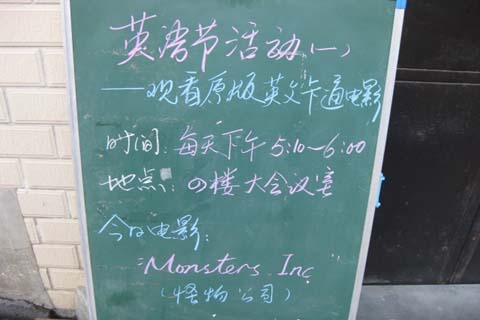 英语节活动(一)
——观看原版英文卡通电影
时间:每天下午5:10~6:00
地点:四楼大会议室
今日电影:
Monsters Inc
(怪物公司)